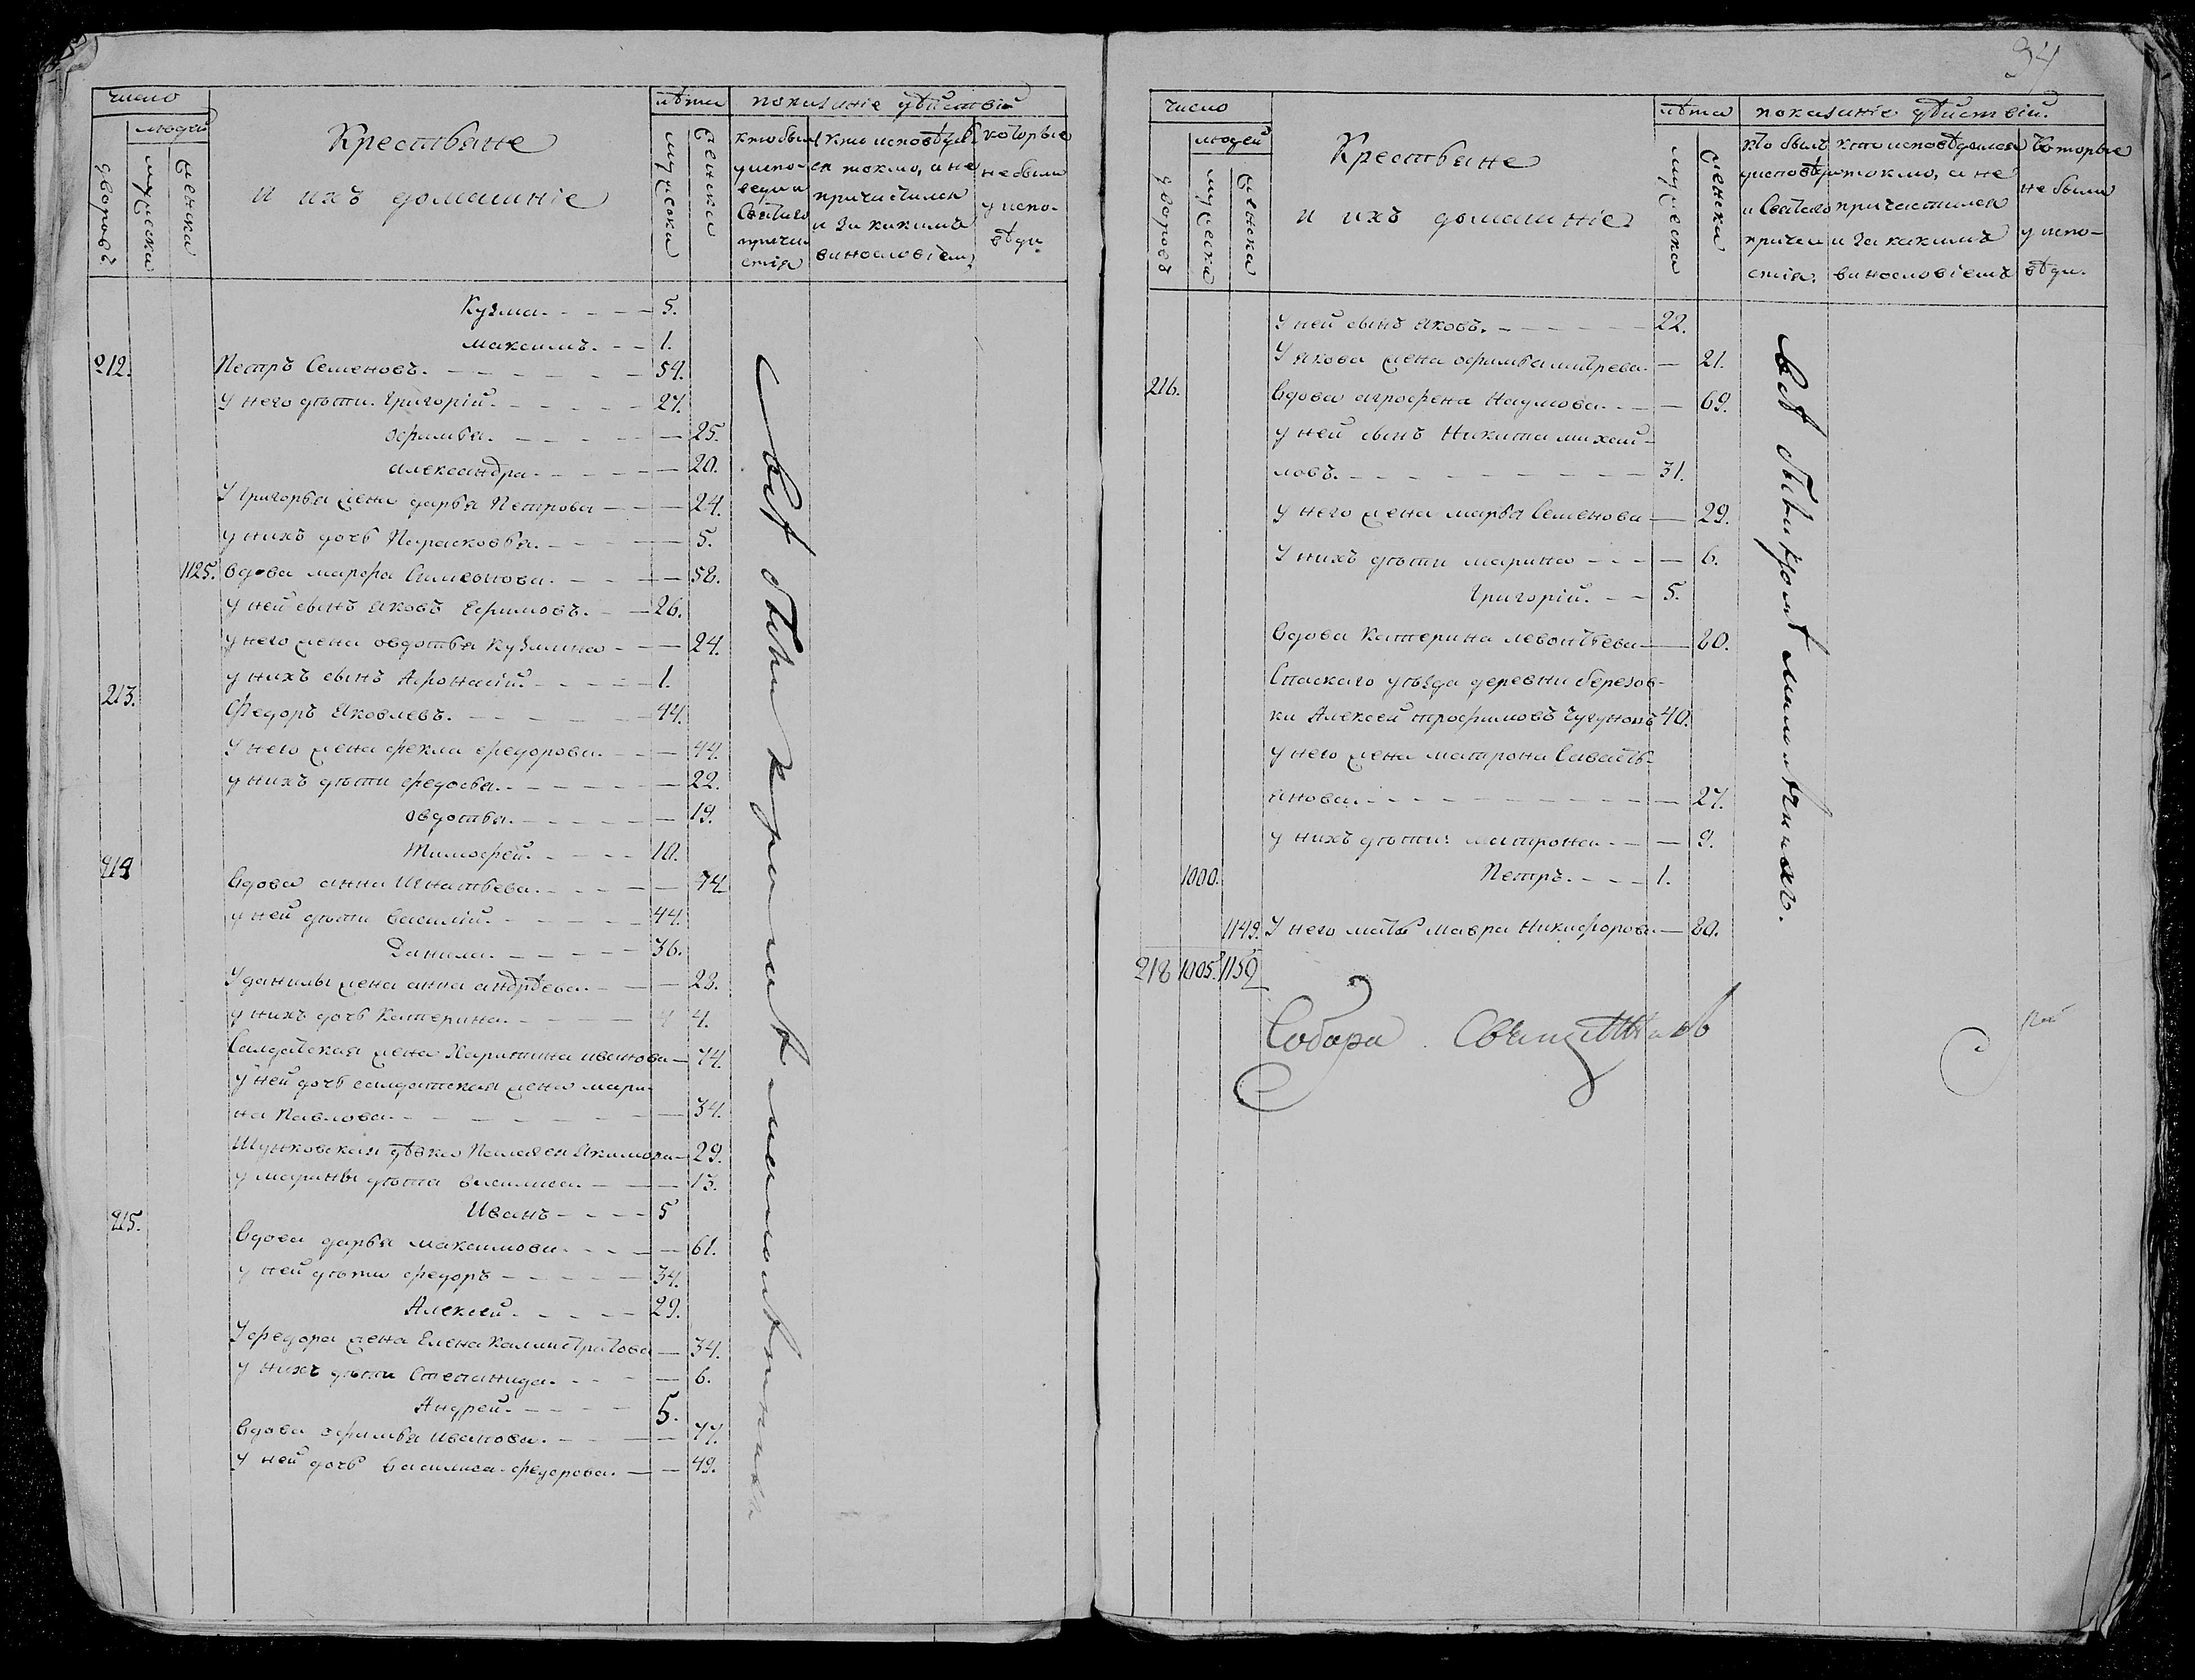 число
людей
дворовъ
мужеска
женска
Крестьяне
и ихъ домашнїе
лѣта
мужеска
женска
показанїе дѣйствїй
кто былъ
у испо-
веди и
Святаго
прича
стїя
кто исповѣдыв
ся токмо, а не
причастился
и за какимъ
винословїем.
которые
не были
у испо-
вѣди.
Кузма. 5.
Максимъ. 1.
212. Петръ Семеновъ. 54.
У него дѣти. Григорїй. 27.
Офимья. 25.
Александра. 20.
У Григорья жена дарья Петрова 24.
у нихъ дочь Парасковья. 5.
1125. Вдова марфа Симеонова. 58.
у ней сынъ Яковъ Ефимовъ. 26.
у него жена овдотья Кузмина 24.
у нихъ сынъ Афонасїй. 1.
213. Федоръ Яковлевъ. 44.
У него жена фекла федорова. 44.
у нихъ дѣти федосья. 22.
овдотья. 19.
Тимофей. 10.
214 Вдова анна Игнатьева. 74
у ней дѣти Василїй. 44.
Данила. 36.
У данилы жена анна андрѣева. 23.
у нихъ дочь Катерина. 4.
Салдатская жена Харитина иванова 74.
у ней дочь салдатская жена мари-
на Павлова. 34.
девка Пелагея Якимова 29.
у марины дѣти василиса. 13.
Иванъ 5
215. Вдова дарья максимова. 61.
у ней дѣти федоръ 34.
Алексей. 29.
У федора жена Елена Каллистратова 34.
у нихъ дѣти Степанида. 6.
Андрей. 5.
Вдова офимья иванова. 77.
у ней дочь василиса федорова. 49.
всѣ были кромѣ малолѣтныхъ
34
число
людей
дворовъ
мужеска
женска
Крестьяне
и ихъ домашнїе
лѣта
мужеска
женска
показанїе дѣйствїй.
кто былъ
у исповѣди
и Святаго
прича
стїя.
кто исповѣдался
токмо, а не
причастился
и за какимъ
винословїемъ
которые
не были
у испо-
вѣди.
У ней сынъ Яковъ. 22.
У Якова жена офимья митрева. 21.
216. Вдова агрофена Наумова. 69.
у ней сынъ Никита михай-
ловъ. 31.
у него жена марья Семенова 29.
У нихъ дѣти марина 6.
Григорїй. 5.
Вдова Катерина левонтьева 80.
Спаского уѣзда деревни березов-
ки Алексей трофимовъ 40.
у него жена матрона Савасть-
янова. 27.
у нихъ дѣти: матрона. 9.
1000. Петръ. 1.
1149. У него мать мавра Никифорова 80.
218 1005. 1152
всѣ были кромѣ малолѣтныхъ.
Собора Священникъ